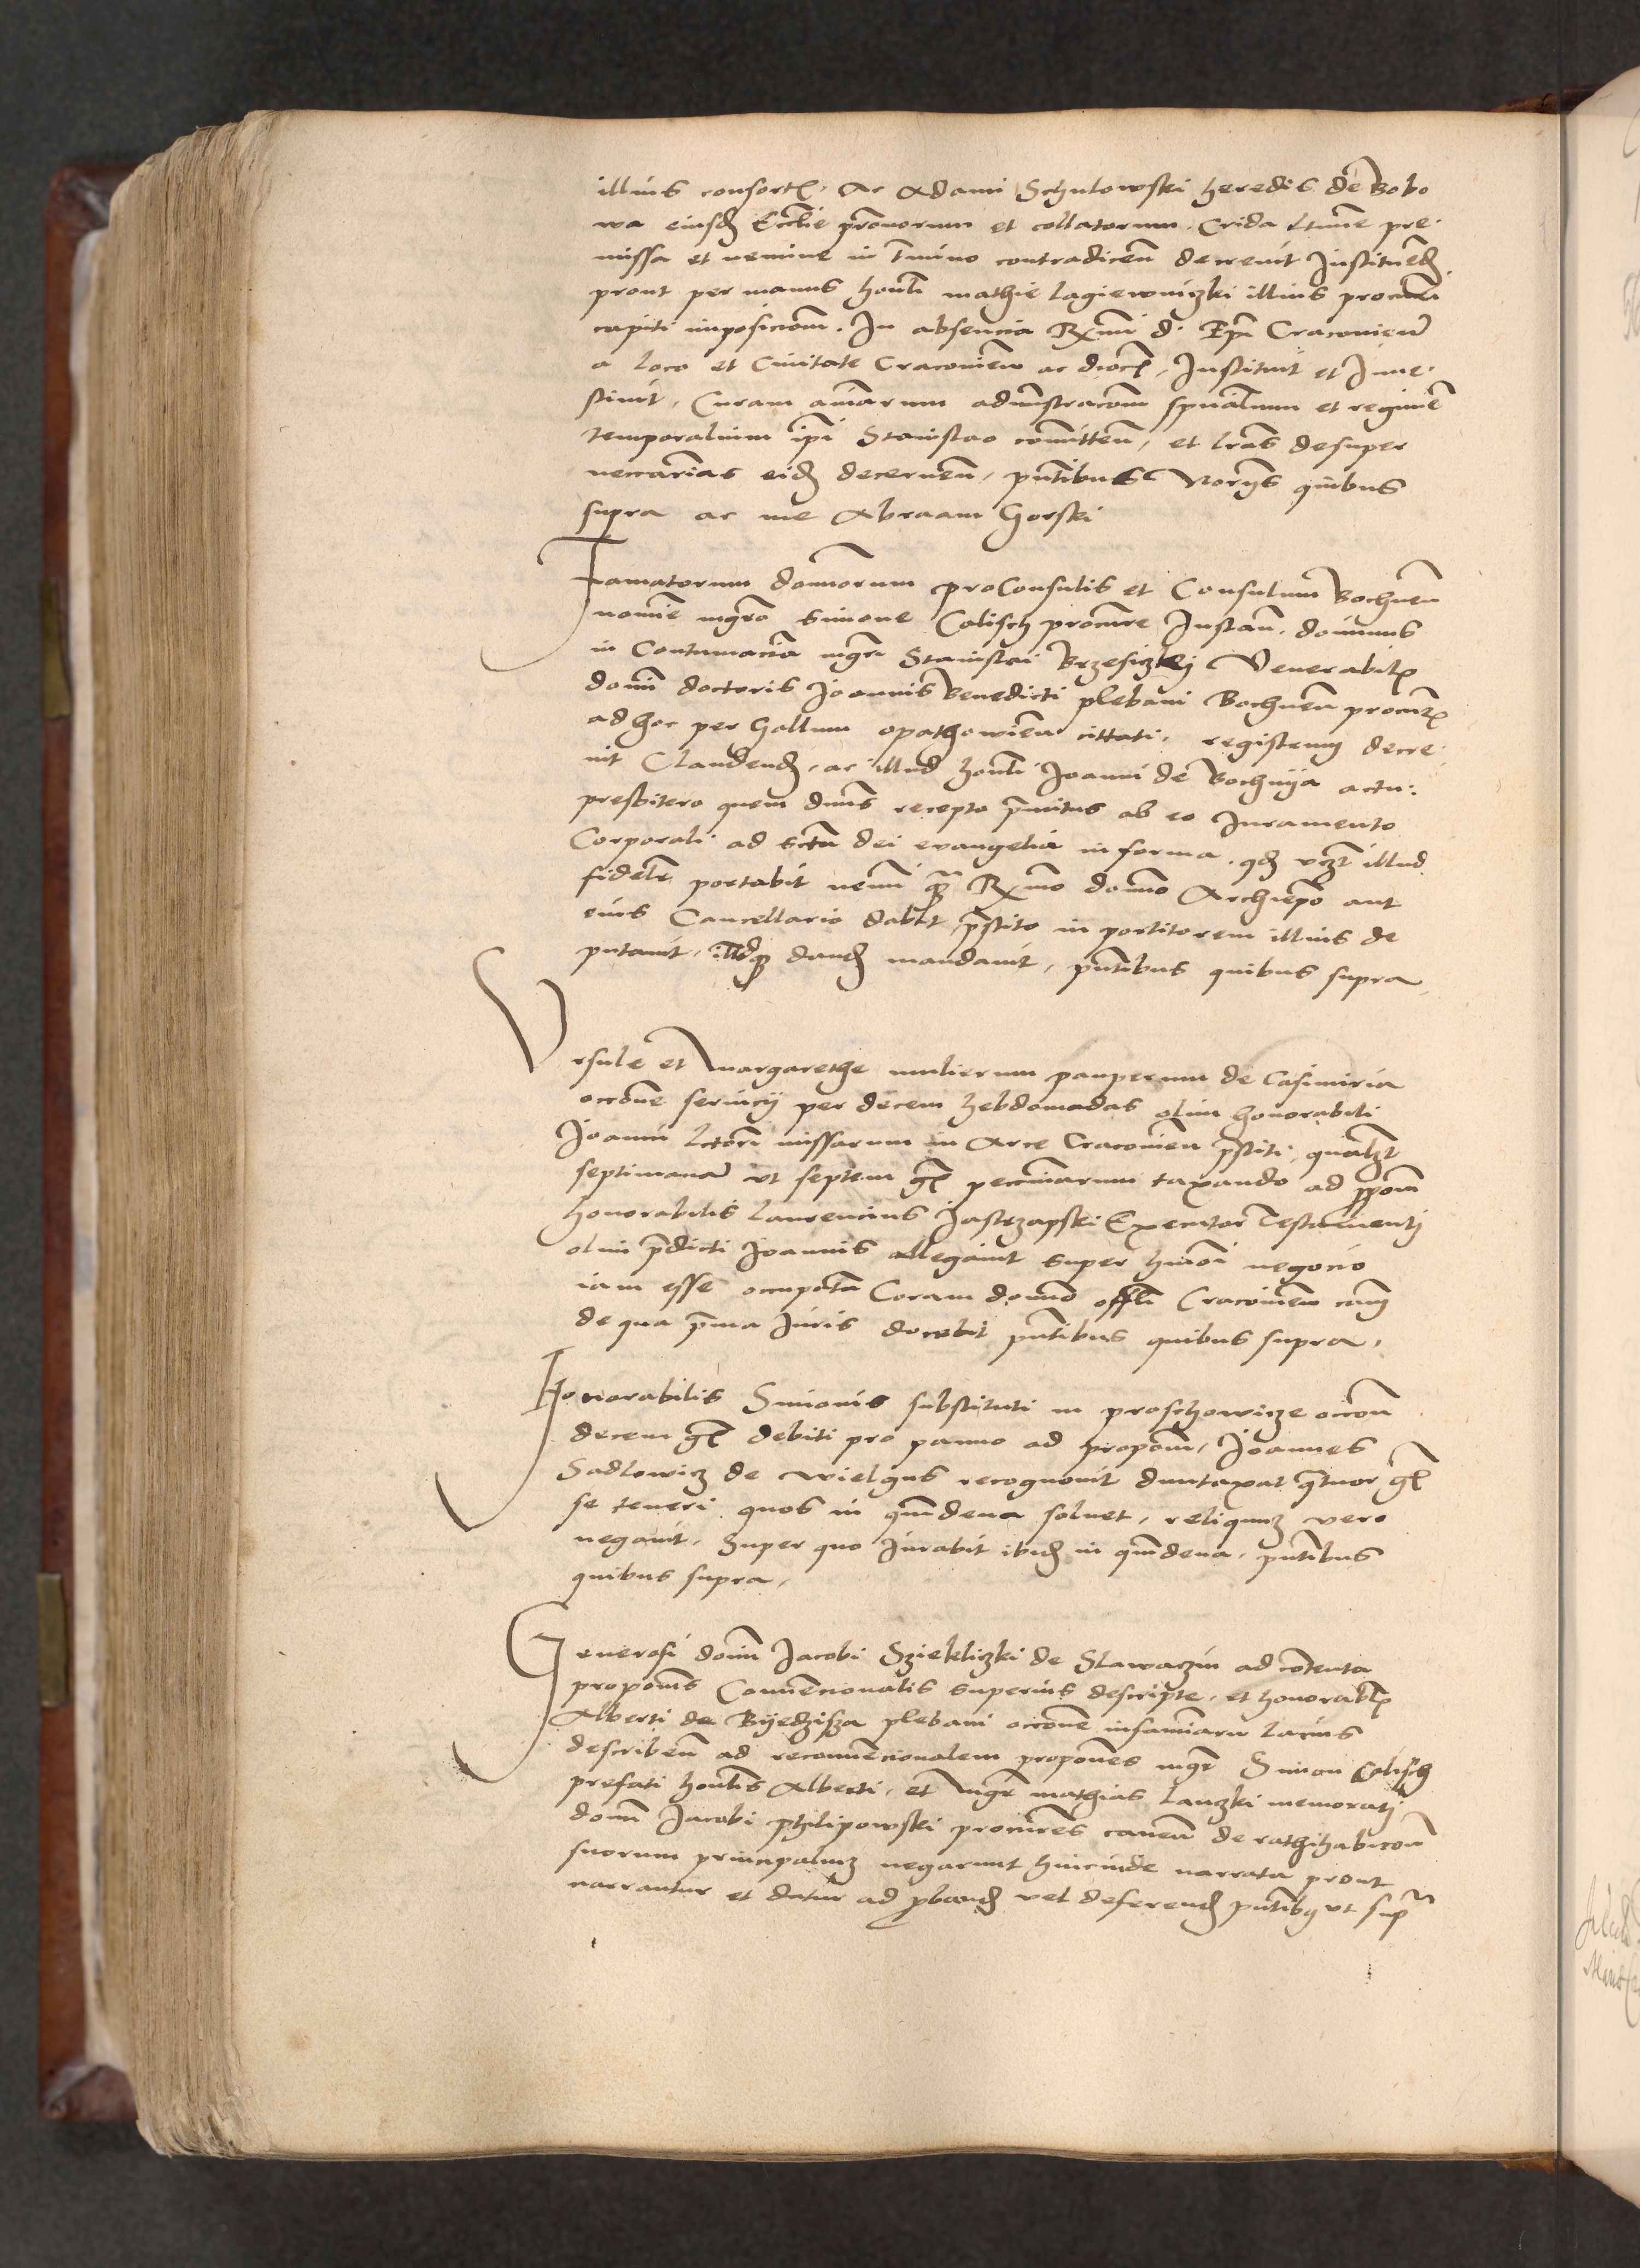 illius consort, Ac Adami Schulowski heredis de Bobo
wa eiusd Eccl̄ie pr̄onorum et collatorum, Crida l̄time pre
missa et nemine in T̄mino contradicen̄ decrevit Instituend.
prout per manus hon̄li mathie lagiewniczki illius procur̄
capiti imposicion̄. In absencia Rx̄mi d. Ep̄i Cracovien̄
a loco et Civitate Cracovien̄ ac dioc, Instituit et Inve
stivit, Curam an̄iarum adm̄nstracōnem sp̄ualium et regimē
temporalium ip̄i Stanislao com̄itten̄, et lr̄as desuper
nec̄carias eid decernen̄, pn̄tibus Noriis quibus
supra ac me Abraam Gorski
Famatorum dom̄norum proConsulis et Consulum Bochnen̄
nomīe mgr̄o Simone Calisch procur̄e Instan̄. dominus
in Contumaciā mgr̄i Stanislai Brzesiczkij Venerabil
dom̄i doctoris Joannis Benedicti plebani Bochnen̄ procur
ad hoc per Gallum opathowien̄ cittati, registrum decre
vit Claudend, ac illud hon̄li Joanni de Bochnija actu
presbitero quem dn̄us recepto pr̄mitus ab eo Iuramento
Corporali ad sc̄ta dei evangelia in forma, qd vz̄t illud
fidelr̄ portabit nemi q̄ Rx̄mo dom̄no Archiep̄o aut
eius Cancellario dabit pr̄stito in portitorem illius de
putavit, illdq dand mandavit, pn̄tibus quibus supra
Vrsule et margarethe mulierum pauperum de Casimiria
occōne servicij per decem hebdomadas olim honorabili
Joanni lctōri missarum in Arce Cracovien̄ pr̄stiti, qualz̄t
septimana ut septem gr̄ peccuniarum taxando ad ppōnem
honorabilis laurencius Jastrzapski Executor Testamentj
olim pr̄dicti Joannis allegavit super hm̄oi negocio
iam esse occupatā Coram dom̄no offl̄i Cracovien̄ cam̄
de qua pr̄ma Iuris docebit pn̄tibus quibus supra.
Honorabilis Simonis substituti in proschowicze occōn
decem gr̄ debiti pro panno ad propōn̄, Joannes
Sadlowicz de wielgus recognovit duntaxat q̄tuor gr̄
se teneri quos in qn̄dena solvet, reliquum vero
negavit, Super quo Iurabit ibid in qn̄dena, pn̄tibus
quibus supra,
Generosi dom̄i Jacobi Sziekliczki de Slawaczin ad cōtenta
propōn̄is Convencionalis superius descripte, et honorabl
Alberti de Bijedzisza plebani occōne infamiaru lacius
describen̄ ad reconvencionalem propōnes mgr̄ Simon Calisch
prefati hon̄lis Alberti, et mgr̄ mathias lanczki memoratj
dom̄i Jacobi philipowski procur̄es caven̄ de rathihabicōn̄
suorum principalium negarunt hincinde narrata prout
narrantur et datur ad p̄band vel deferend pn̄tibq ut sup̄